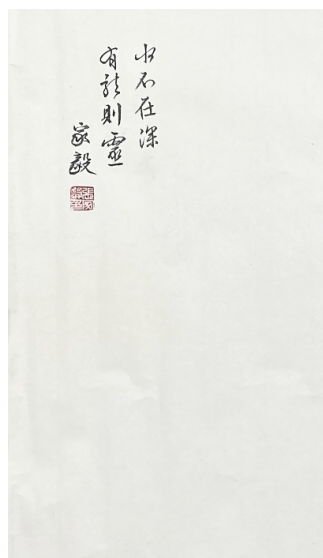 水不在深
有龍則靈
家毅